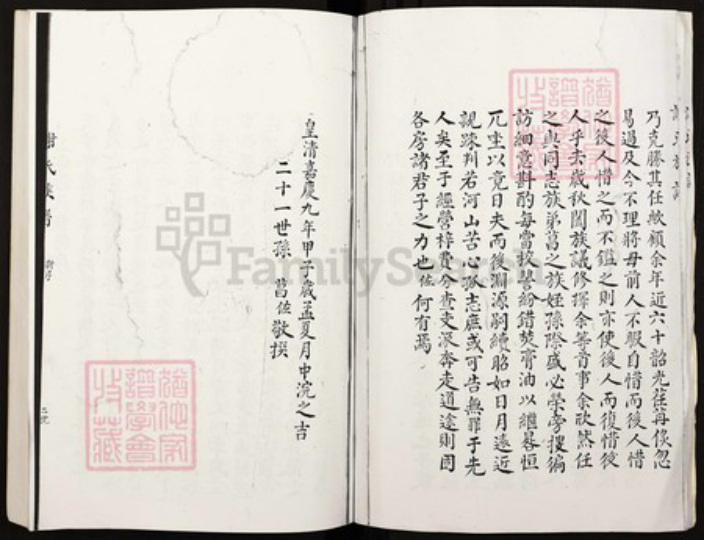 乃克勝其任歟顧余年近六十韶光荏苒倏忽
易過及今不理將毋前人不暇自惜而後人惜
之後人惜之而不鑑之則亦使後人而復惜後
人乎去歲秋闔族議修擇余等首事余欣然任
之與同志族弟萬之族姪孫際盛必榮旁搜徧
訪細意斟酌每當校讐紛錯焚膏油以繼晷恒
兀坐以竟日夫而後淵源嗣續昭如日月遠近
親踈判若河山苦心孤志庶或可告無罪于先
人矣至于經營梓費分查支派奔走道途則固
各房諸君子之力也佐何有焉
皇清嘉慶九年甲子歲孟夏月中浣之吉
二十一世孫 萬佐敬撰
謝氏族譜
FamilySearch